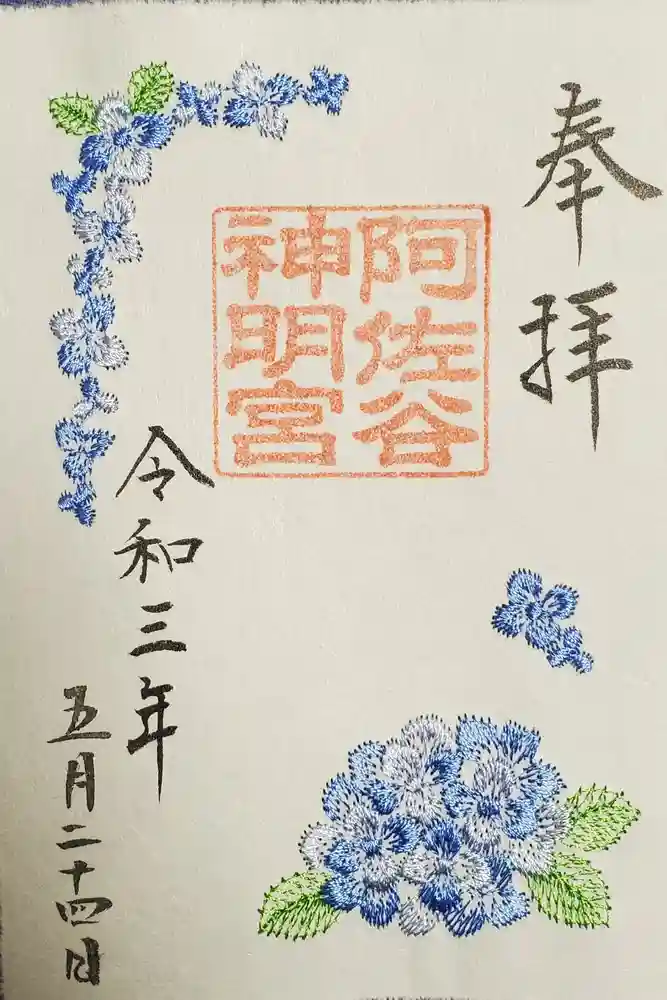 奉拝
阿佐谷
神明宮
令和三年
五月二十四日